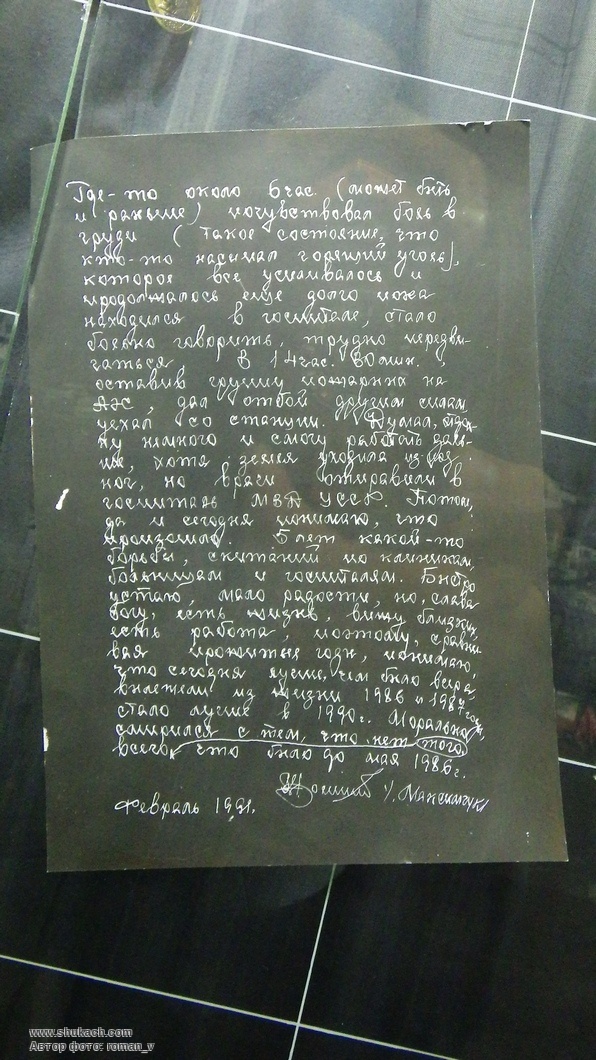 Где-то около 6 час. (может быть
и раньше) почувствовал боль в
груди (такое состояние, что
кто-то насыпал горящий уголь),
которое все усиливалось и
продолжалось еще долго пока
находился в госпитале, стало
больно говорить, трудно передви-
гаться. В 14 час. 30 мин.,
оставив группу пожарных на
АЭС, дал отбой другим силам,
уехал со станции. Думал, отдох-
ну немного и смогу работать даль-
ше, хотя земля уходила из-под
ног, но врачи отправили в
госпиталь МВД УССР. Потом,
да и сегодня понимаю, что
произошло. 5 лет какой-то
борьбы, скитаний по клиникам,
больницам и госпиталям. Быстро
устаю, мало радости, но, слава
богу, есть жизнь, вижу близких,
есть работа, поэтому, сравни
вая прожитые годы, понимаю,
что сегодня лучше, чем было вчера
вычеркнули из жизни 1986 и 1987 годы,
стало лучше в 1990г. Морально
смирился с тем, что нет того
всего, что было до мая 1986г.
В. Максимчук
Февраль 1991.
www.shukach.com
Автор фото: roman_v